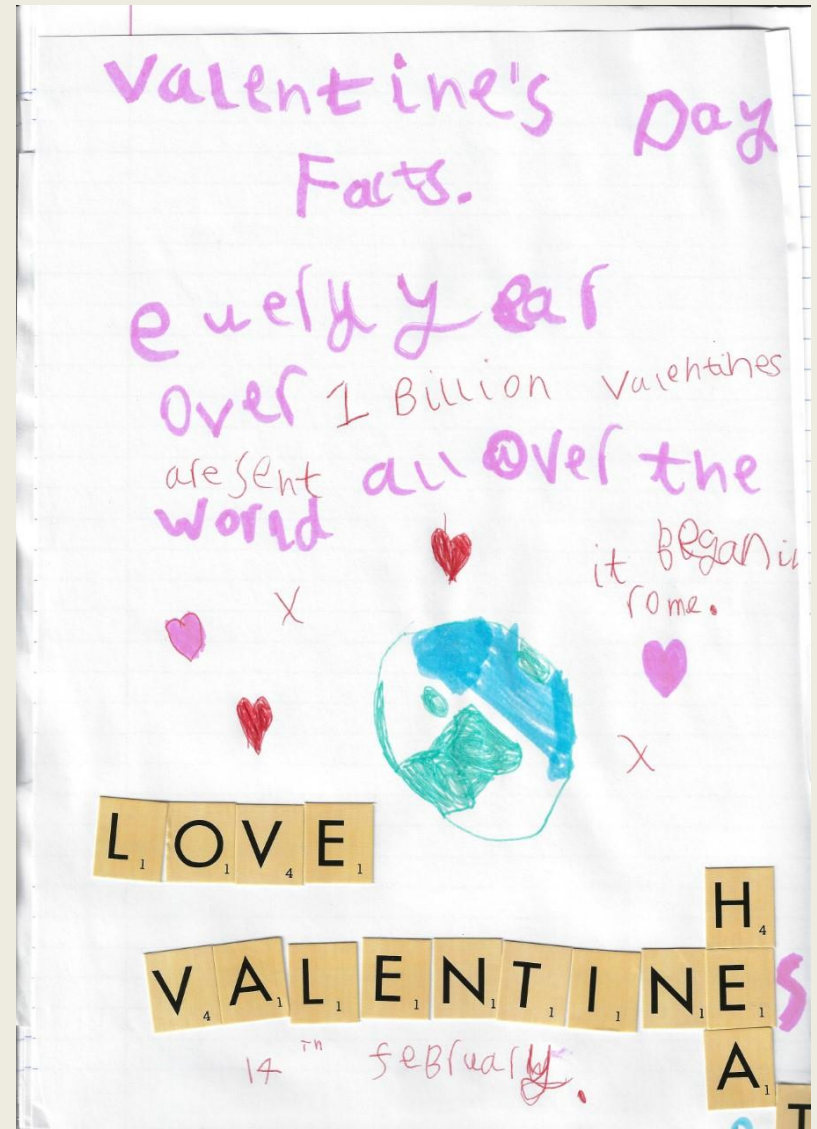 Valentine's Day
Facts.
every year
Over 1 Billion Valentines
are sent all Over the
World
it Began in
rome.
X
X
L1 O1 V4 E1
H4
V4 A1 L1 E1 N1 T1 I1 N1 E1 S
A1
14TH feBruary.
T